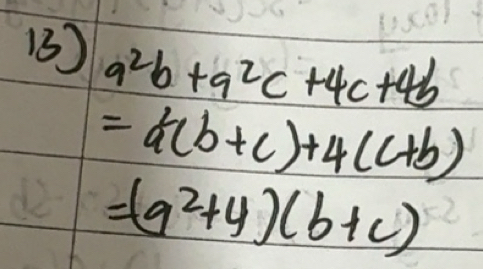 13) a²b + a²c + 4c + 4b
= a²(b+c) + 4(c+b)
= (a²+4)(b+c)